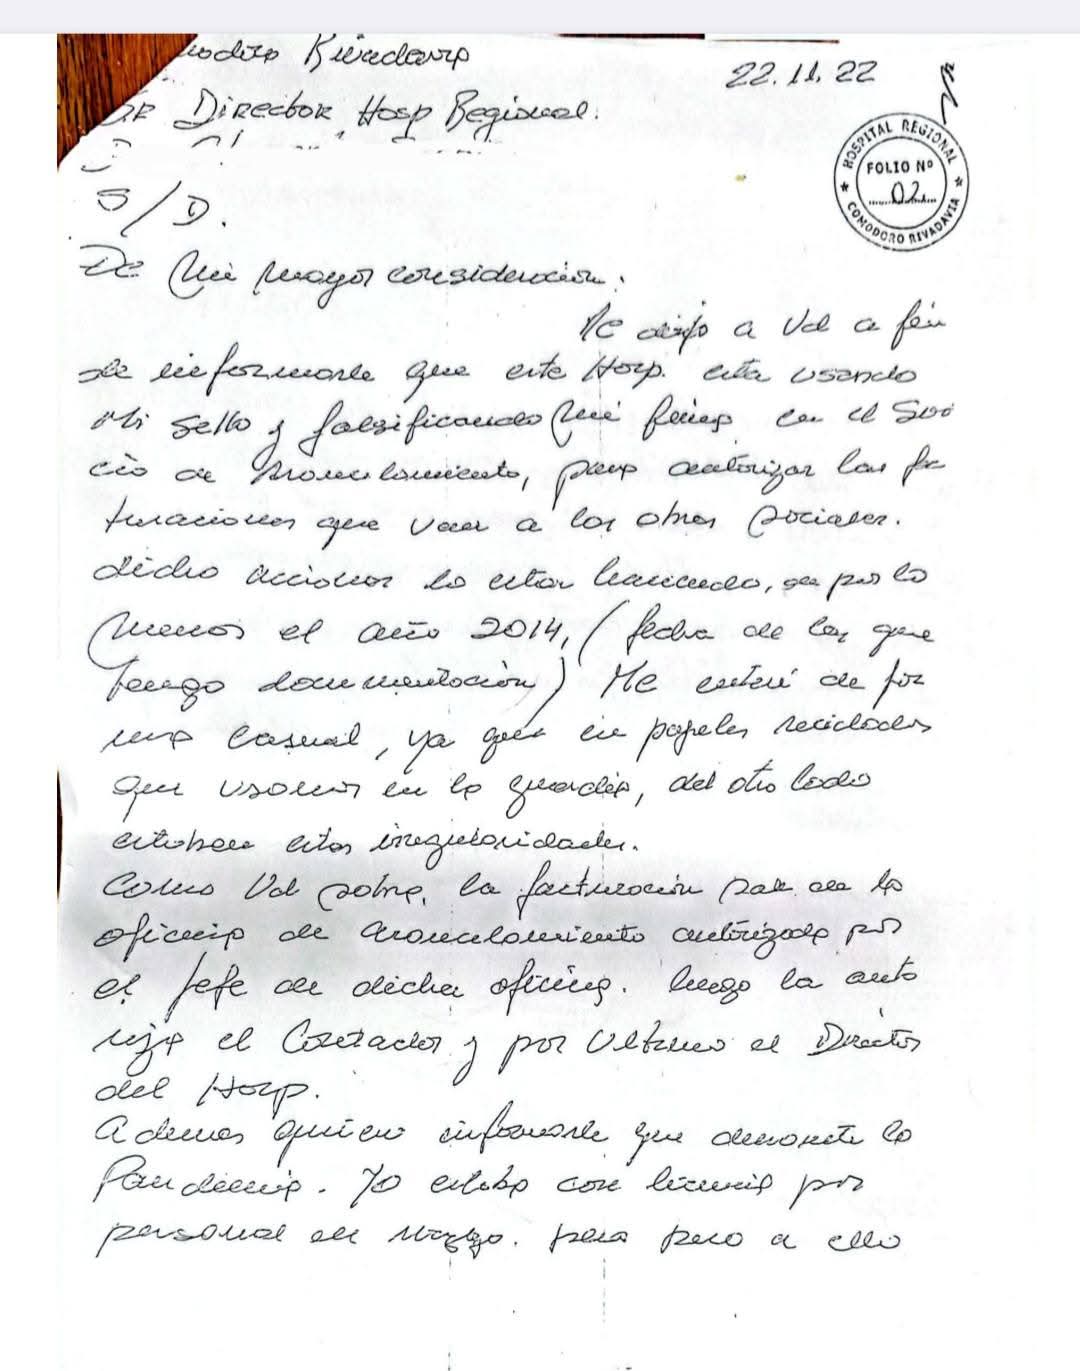 Comodoro Rivadavia
22.11.22
SR Director Hosp Regional.
HOSPITAL REGIONAL
FOLIO Nº
02
COMODORO RIVADAVIA
S/D.
De mi mayor consideración.
Me dirijo a Ud a fin
de informarle que este Hosp. esta usando
Mi sello y falsificando mi firma en el Servi
cio de Arancelamiento, para autorizar las fac
turaciones que van a las obras sociales.
dicho acciones lo estan haciendo, por lo
menos el año 2014, (fecha de las que
tengo documentación) Me enteré de for
ma casual, ya que en papeles reciclados
que usamos en la guardia, del otro lado
estaban estas irregularidades.
Como Ud sabra, la facturación sale de la
oficina de arancelamiento autorizada por
el Jefe de dicha oficina. luego la auto
riza el Contador y por Ultimo el Director
del Hosp.
Ademas quiero informarle que durante la
Pandemia. Yo estaba con licencia por
personal de riesgo. pese a ello